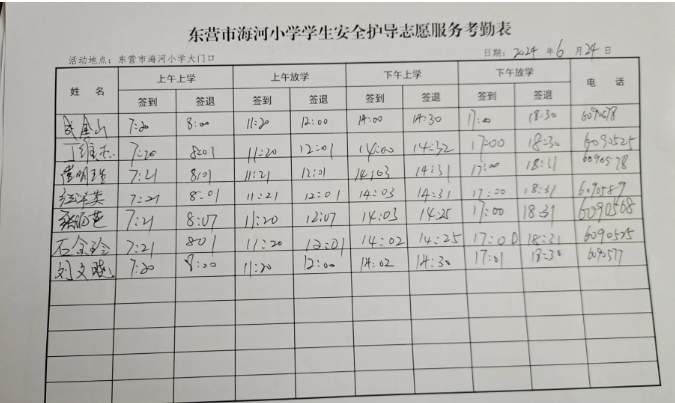 东营市海河小学学生安全护导志愿服务考勤表
活动地点：东营市海河小学大门口 日期：2024年6月24日
姓名 上午上学 上午放学 下午上学 下午放学 电话
签到 签退 签到 签退 签到 签退 签到 签退
7:20 8:00 11:20 12:00 14:00 14:30 17:00 18:30
7:20 8:01 11:20 12:01 14:00 14:32 17:00 18:30 6090525
7:21 8:01 11:21 12:01 14:03 14:31 17:00 18:31 6090578
7:21 8:01 11:21 12:01 14:03 14:31 17:00 18:31 6090587
7:21 8:07 11:20 12:07 14:03 14:25 17:00 18:31 6090568
7:21 801 11:20 12:01 14:02 14:25 17:00 18:31 6090525
刘文晓 7:20 8:00 11:20 12:00 14:02 14:30 17:01 18:30 6090577